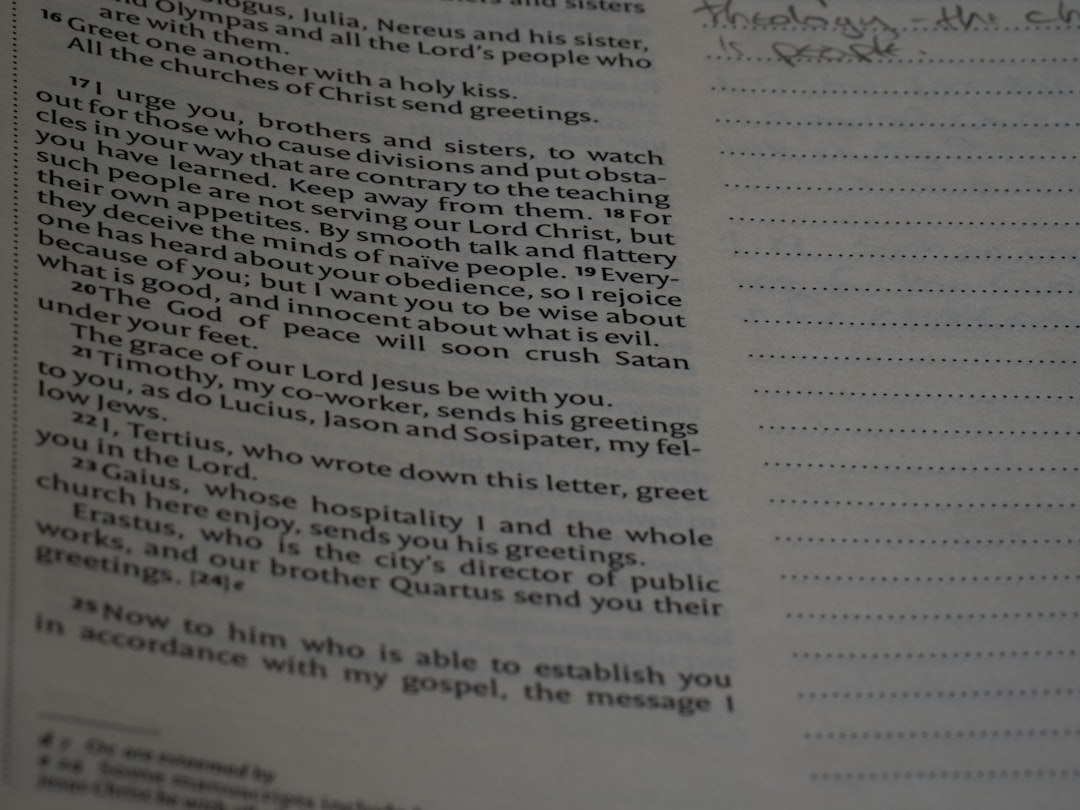 ogus, Julia, Nereus and his sister,
and Olympas and all the Lord's people who
are with them.
16 Greet one another with a holy kiss.
All the churches of Christ send greetings.
17 I urge you, brothers and sisters, to watch
out for those who cause divisions and put obsta-
cles in your way that are contrary to the teaching
you have learned. Keep away from them. 18 For
such people are not serving our Lord Christ, but
their own appetites. By smooth talk and flattery
they deceive the minds of naïve people. 19 Every-
one has heard about your obedience, so I rejoice
because of you; but I want you to be wise about
what is good, and innocent about what is evil.
20 The God of peace will soon crush Satan
under your feet.
The grace of our Lord Jesus be with you.
21 Timothy, my co-worker, sends his greetings
to you, as do Lucius, Jason and Sosipater, my fel-
low Jews.
22 I, Tertius, who wrote down this letter, greet
you in the Lord.
23 Gaius, whose hospitality I and the whole
church here enjoy, sends you his greetings.
Erastus, who is the city's director of public
works, and our brother Quartus send you their
greetings. [24] e
25 Now to him who is able to establish you
in accordance with my gospel, the message I
d 7 Or are esteemed by
e 24 Some manuscripts include
theology - the ch
is people.